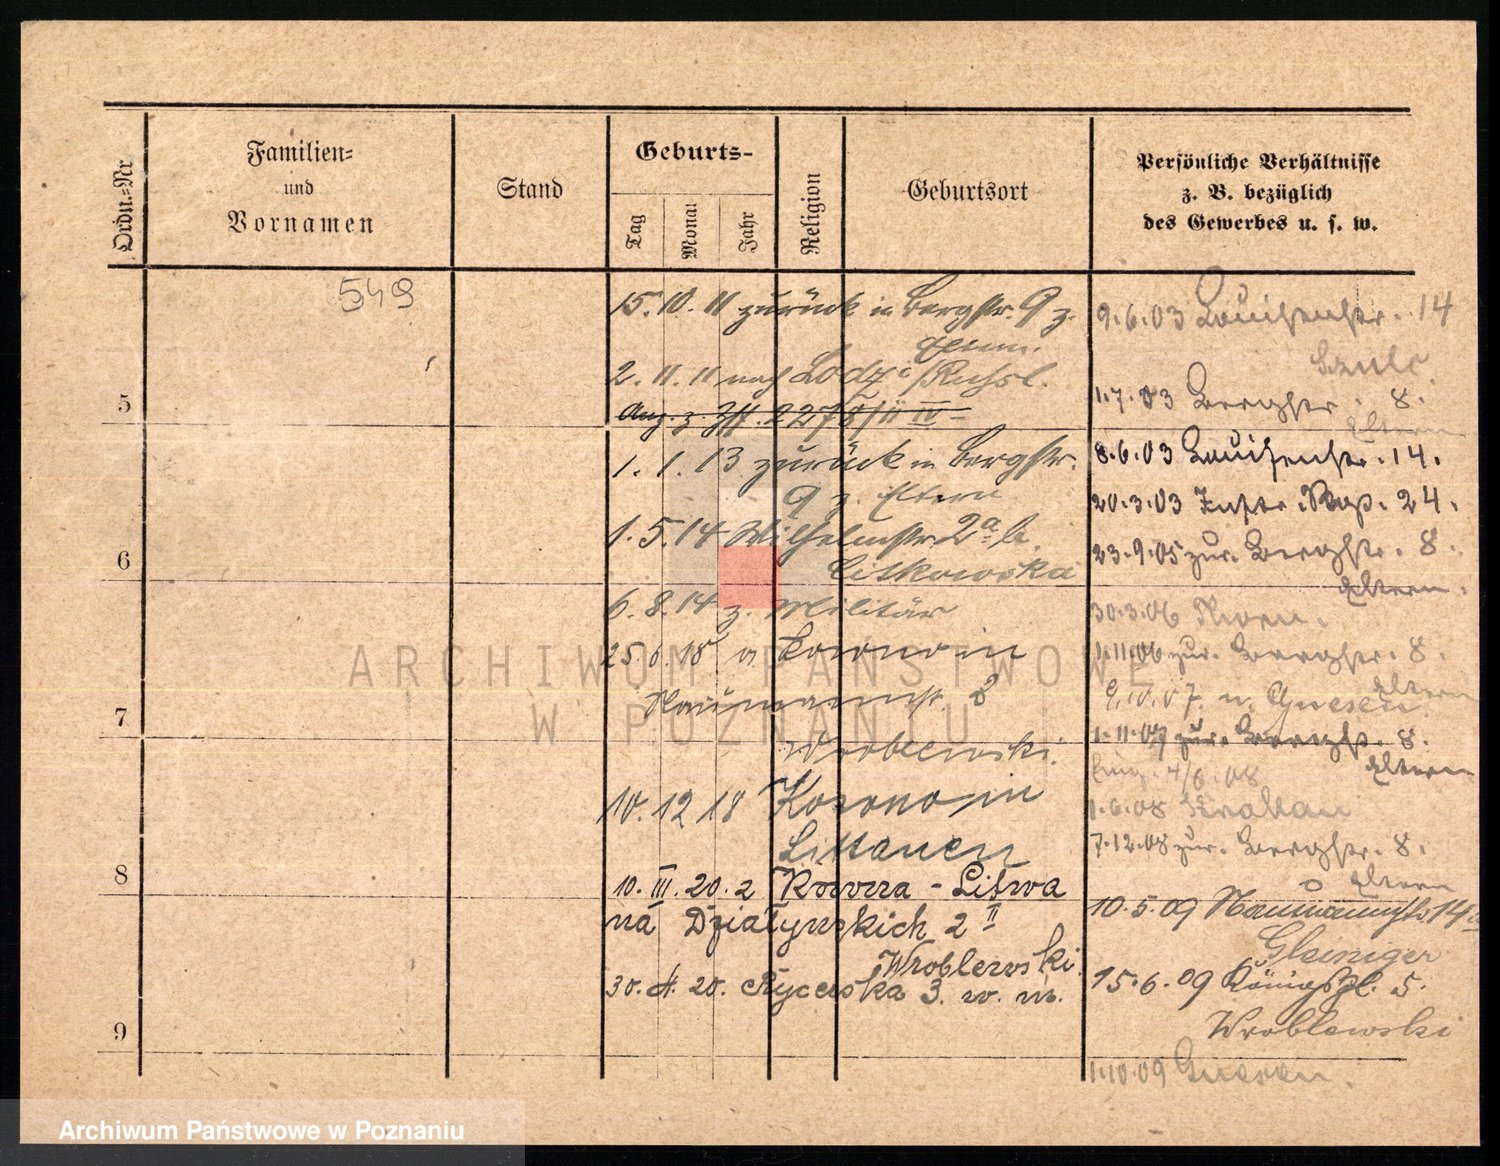 Ordn.=Nr.
Familien=
und
Vornamen
Stand
Geburts-
Tag
Monat
Jahr
Religion
Geburtsort
Persönliche Verhältnisse
z. B. bezüglich
des Gewerbes u. s. w.
549
5
6
7
8
9
15. 10. 11 zurück in Bergstr. 9 z.
Eltern.
2. 11. 11 nach Lodz i/Russl.
1. 1. 13 zurück in Bergstr.
9 z. Eltern
1. 5. 14 Wilhelmstr. 2a b.
Citkowska
6. 8. 14 z. Militär
25. 6. 18 Kowno in
Naumannstr. 2
Wroblewski.
10. 12 18 Kowno in
Littauen
10. III. 20. z Kowna - Litwa
na Działyńskich 2 II
Wroblewski.
30. 4. 20. Rycerska 3. w. m.
9.6.03 Louisenstr. 14
Szulc.
1.7.03 Bergstr. 8.
Eltern
8.6.03 Louisenstr. 14.
20.3.03 24.
23.9.05 zur. Bergstr. 8.
Eltern.
30.3.06 Thorn.
1.11.06 zur. Bergstr. 8.
Eltern
2.10.07. n. Gnesen
1.11.07 zur. Bergstr. 8.
Eltern
4/6.08
1.6.08 Krakau
7.12.08 zur. Bergstr. 8.
Eltern
10.5.09 Naumannstr. 14
Gleiniger
15.6.09 Königspl. 5.
Wroblewski
1.10.09 Gnesen.
ARCHIWUM PAŃSTWOWE
W POZNANIU
Archiwum Państwowe w Poznaniu